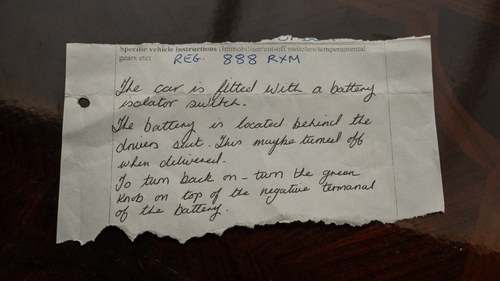 Specific vehicle instructions (immobiliser/cut-off switches/temperamental
gears etc)
REG. 888 RXM
The car is fitted with a battery
isolator switch.
The battery is located behind the
drivers seat. This maybe turned off
when delivered.
To turn back on - turn the green
knob on top of the negative termanal
of the battery.